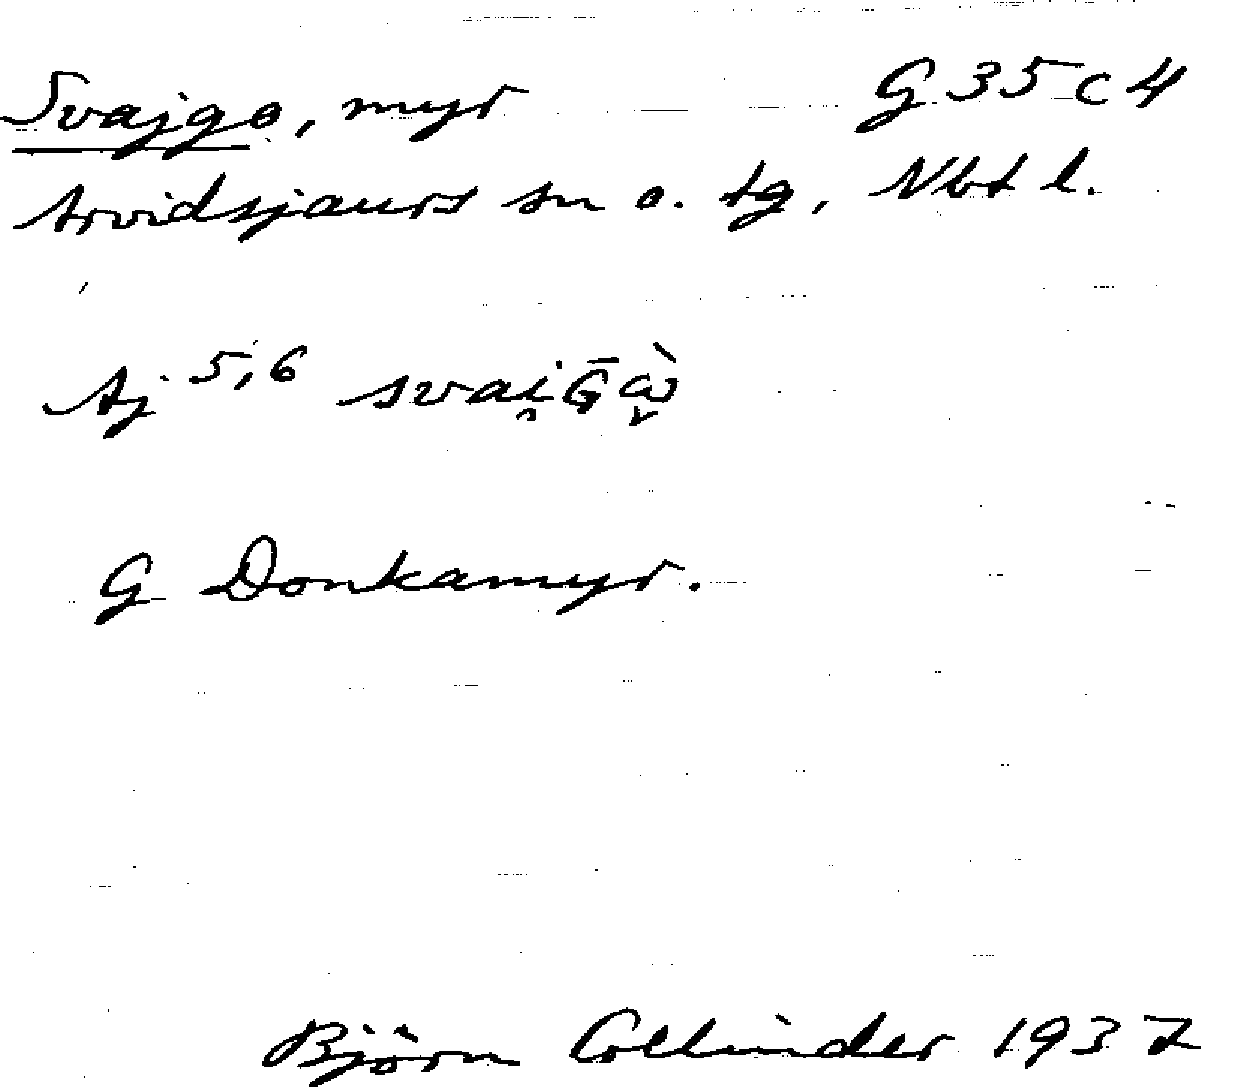 Svajgo, myr G 35 c 4
Arvidsjaurs sn o. tg, Nbt l.
Aj 5,6 svai̯ɢ̄ὼ̬
G Donkamyr.
Björn Collinder 1937